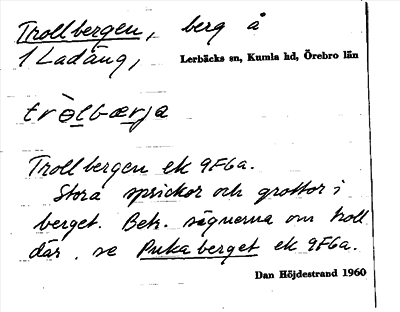 Trollbergen, berg å
1 Ladäng, Lerbäcks sn, Kumla hd, Örebro län
Trollbergen ek 9F6a.
Stora sprickor och grottor i
berget. Betr. sägnerna om troll
där, se Pukaberget ek 9F6a.
Dan Höjdestrand 1960